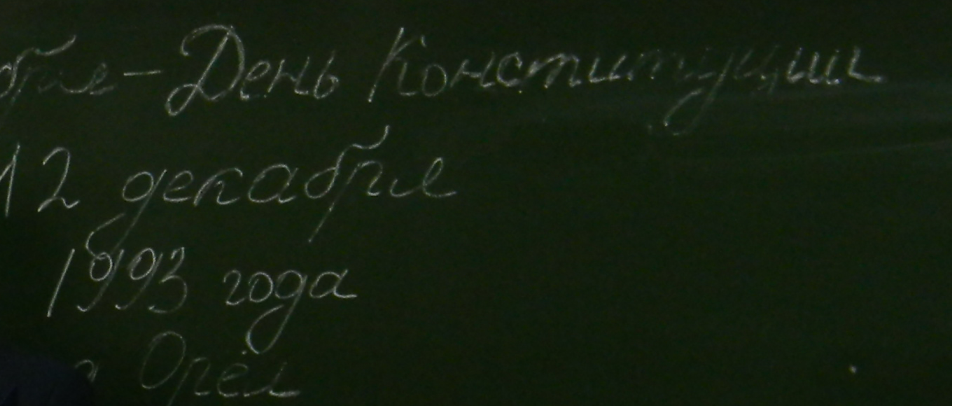 бря – День Конституции
12 декабря
1993 года
г Орёл